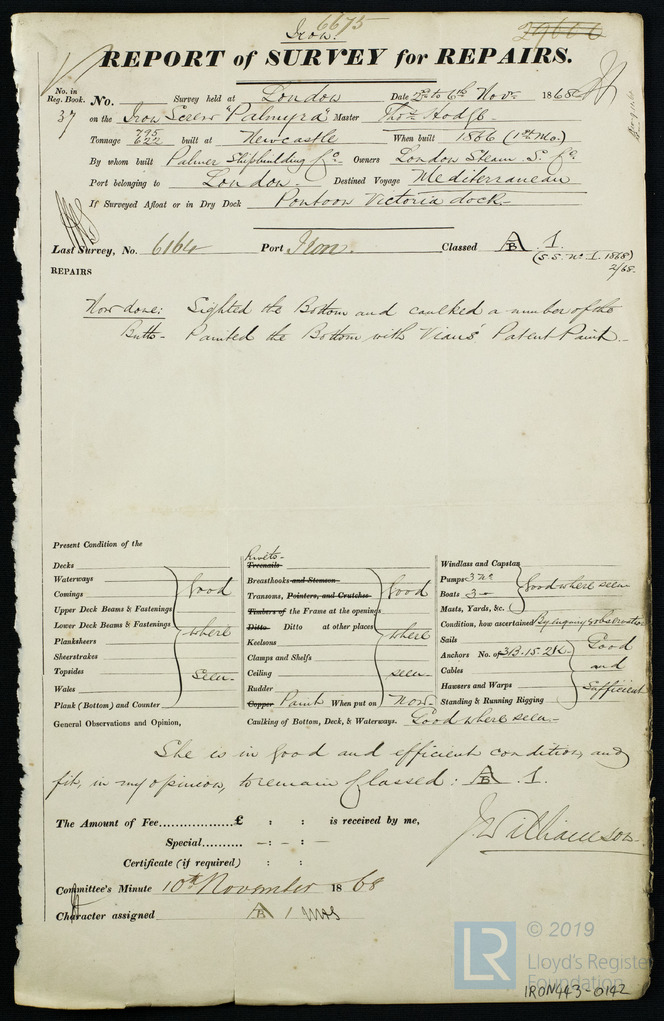 6675
Iron.
29666
REPORT of SURVEY for REPAIRS.
No. in Reg. Book. No. Survey held at London Date 2nd to 6th Novr. 1868
37 on the Iron Screw "Palmyra" Master Thos. Hodge
Tonnage 795 622 built at Newcastle When built 1866 (1st Mo.)
By whom built Palmer Shipbuilding Co. Owners London Steam S. Co
Port belonging to London. Destined Voyage Mediterranean
If Surveyed Afloat or in Dry Dock Pontoon Victoria dock
Last Survey, No. 6164 Port Iron. Classed A B .1.
(S.S. No. I. 1868)
2/68.
REPAIRS
Now done: Sighted the Bottom and caulked a number of the
Butts - Painted the Bottom with Vians' Patent Paint.
Present Condition of the
Decks
Waterways
Comings
Upper Deck Beams & Fastenings
Lower Deck Beams & Fastenings
Planksheers
Sheerstrakes
Topsides
Wales
Plank (Bottom) and Counter
Good
where
seen.
rivets.
Treenails
Breasthooks and Stemson
Transoms, Pointers, and Crutches
Timbers of the Frame at the openings
Ditto Ditto at other places
Keelsons
Clamps and Shelfs
Ceiling
Rudder
Copper Paint When put on Now.
Good
where
seen
Windlass and Capstan
Pumps 3 No
Boats 3
Masts, Yards, &c.
Good where seen
Condition, how ascertained By inquiry & observation
Sails
Anchors No. of 3B. 1S. 2K.
Cables
Hawsers and Warps
Standing & Running Rigging
Good
and
Sufficient
General Observations and Opinion,
Caulking of Bottom, Deck, & Waterways. Good where seen
She is in good and efficient condition, and
fit, in my opinion, to remain Classed: A B .1.
The Amount of Fee............£ : : is received by me,
Special.......... - : - : -
Certificate (if required) : :
J. Williamson
Committee's Minute 10th November 1868
Character assigned A B 1
© 2019
LR
Lloyd's Register
Foundation
IRON443-0142